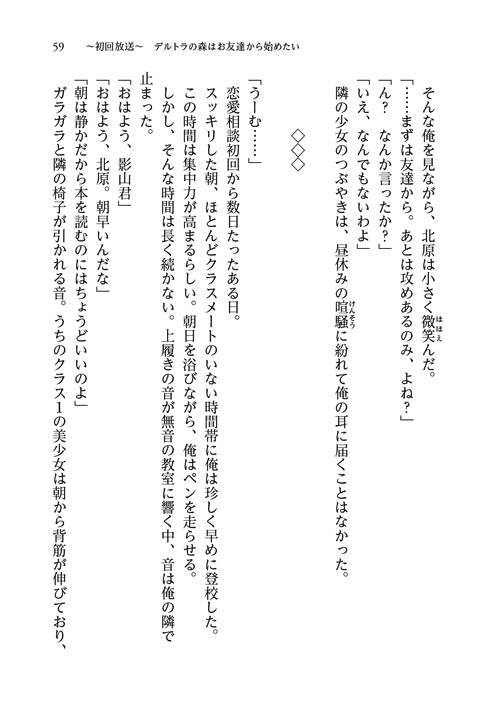 59　～初回放送～　デルトラの森はお友達から始めたい
そんな俺を見ながら、北原は小さく微笑んだ。
「……まずは友達から。あとは攻めあるのみ、よね？」
「ん？　なんか言ったか？」
「いえ、なんでもないわよ」
隣の少女のつぶやきは、昼休みの喧騒に紛れて俺の耳に届くことはなかった。
◇◇◇
「うーむ……」
恋愛相談初回から数日たったある日。
スッキリした朝、ほとんどクラスメートのいない時間帯に俺は珍しく早めに登校した。
この時間は集中力が高まるらしい。朝日を浴びながら、俺はペンを走らせる。
しかし、そんな時間は長く続かない。上履きの音が無音の教室に響く中、音は俺の隣で
止まった。
「おはよう、影山君」
「おはよう、北原。朝早いんだな」
「朝は静かだから本を読むのにはちょうどいいのよ」
ガラガラと隣の椅子が引かれる音。うちのクラス１の美少女は朝から背筋が伸びており、